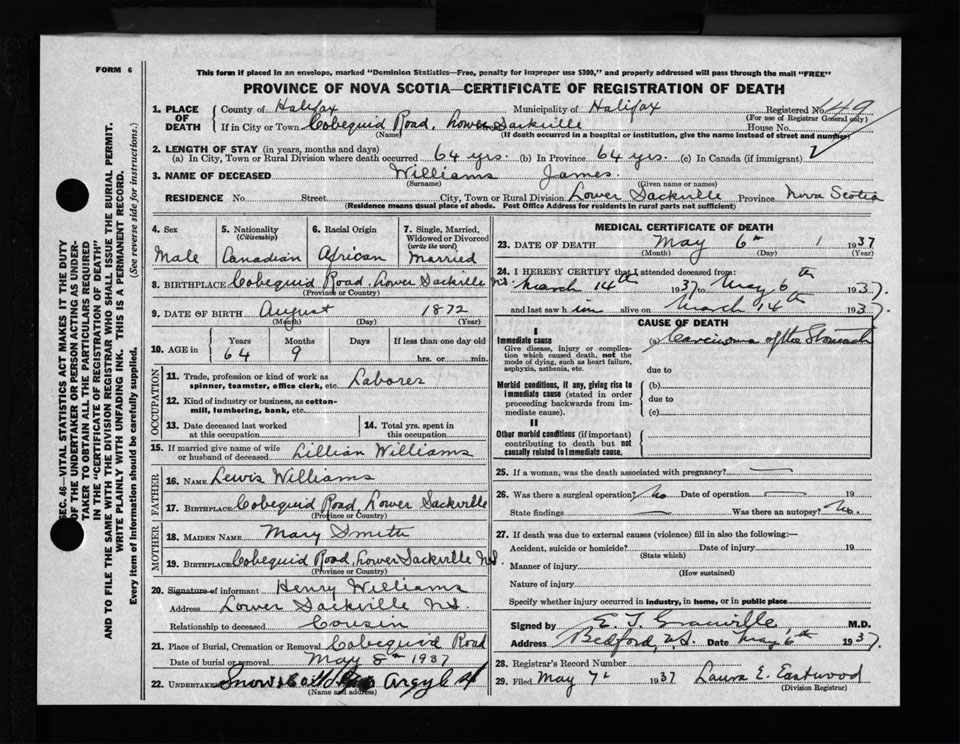 FORM 6
This form if placed in an envelope, marked "Dominion Statistics—Free, penalty for improper use $300," and properly addressed will pass through the mail "FREE"
PROVINCE OF NOVA SCOTIA—CERTIFICATE OF REGISTRATION OF DEATH
1. PLACE OF DEATH County of Halifax Municipality of Halifax Registered No. 149
(For use of Registrar General only)
If in City or Town Cobequid Road, Lower Sackville House No.
(Name) (If death occurred in a hospital or institution, give the name instead of street and number)
2. LENGTH OF STAY (in years, months and days)
(a) In City, Town or Rural Division where death occurred 64 yrs. (b) In Province 64 yrs. (c) In Canada (if immigrant)
3. NAME OF DECEASED Williams James.
(Surname) (Given name or names)
RESIDENCE No. Street City, Town or Rural Division Lower Sackville Province Nova Scotia
(Residence means usual place of abode. Post Office Address for residents in rural parts not sufficient)
4. Sex
Male
5. Nationality
(Citizenship)
Canadian
6. Racial Origin
African
7. Single, Married, Widowed or Divorced
(write the word)
Married
8. BIRTHPLACE Cobequid Road, Lower Sackville N.S.
(Province or Country)
9. DATE OF BIRTH August 1872
(Month) (Day) (Year)
10. AGE in Years Months Days If less than one day old
64 9 hrs. or min.
OCCUPATION
11. Trade, profession or kind of work as
spinner, teamster, office clerk, etc. Laborer
12. Kind of industry or business, as cotton-
mill, lumbering, bank, etc.
13. Date deceased last worked
at this occupation
14. Total yrs. spent in
this occupation
15. If married give name of wife
or husband of deceased Lillian Williams
FATHER
16. NAME Lewis Williams
17. BIRTHPLACE Cobequid Road, Lower Sackville
(Province or Country)
MOTHER
18. MAIDEN NAME Mary Smith
19. BIRTHPLACE Cobequid Road, Lower Sackville N.S.
(Province or Country)
20. Signature of informant Henry Williams
Address Lower Sackville N.S.
Relationship to deceased Cousin
21. Place of Burial, Cremation or Removal Cobequid Road
Date of burial or removal May 8th 1937
22. UNDERTAKER Snow Argyle
(Name and address)
MEDICAL CERTIFICATE OF DEATH
23. DATE OF DEATH May 6th 1937
(Month) (Day) (Year)
24. I HEREBY CERTIFY that I attended deceased from:
March 14th 1937 to May 6th 1937.
and last saw him alive on March 14th 1937.
CAUSE OF DEATH
I
Immediate cause
Give disease, injury or complica-
tion which caused death, not the
mode of dying, such as heart failure,
asphyxia, asthenia, etc.
(a) Carcinoma of the Stomach
due to
Morbid conditions, if any, giving rise to
immediate cause (stated in order
proceeding backwards from im-
mediate cause).
(b)
due to
(c)
II
Other morbid conditions (if important)
contributing to death but not
causally related to immediate cause.
25. If a woman, was the death associated with pregnancy?
26. Was there a surgical operation? No Date of operation 19
State findings Was there an autopsy? No.
27. If death was due to external causes (violence) fill in also the following:—
Accident, suicide or homicide? Date of injury 19
(State which)
Manner of injury
(How sustained)
Nature of injury
Specify whether injury occurred in industry, in home, or in public place
Signed by E. T. Granville, M.D.
Address Bedford, N.S. Date May 6th 1937
28. Registrar's Record Number
29. Filed May 7th 1937 Laura E. Eastwood
(Division Registrar)
SEC. 46—VITAL STATISTICS ACT MAKES IT THE DUTY
OF THE UNDERTAKER OR PERSON ACTING AS UNDER-
TAKER TO OBTAIN ALL THE PARTICULARS REQUIRED
IN THE "CERTIFICATE OF REGISTRATION OF DEATH"
AND TO FILE THE SAME WITH THE DIVISION REGISTRAR WHO SHALL ISSUE THE BURIAL PERMIT.
WRITE PLAINLY WITH UNFADING INK. THIS IS A PERMANENT RECORD.
Every item of information should be carefully supplied. (See reverse side for instructions.)